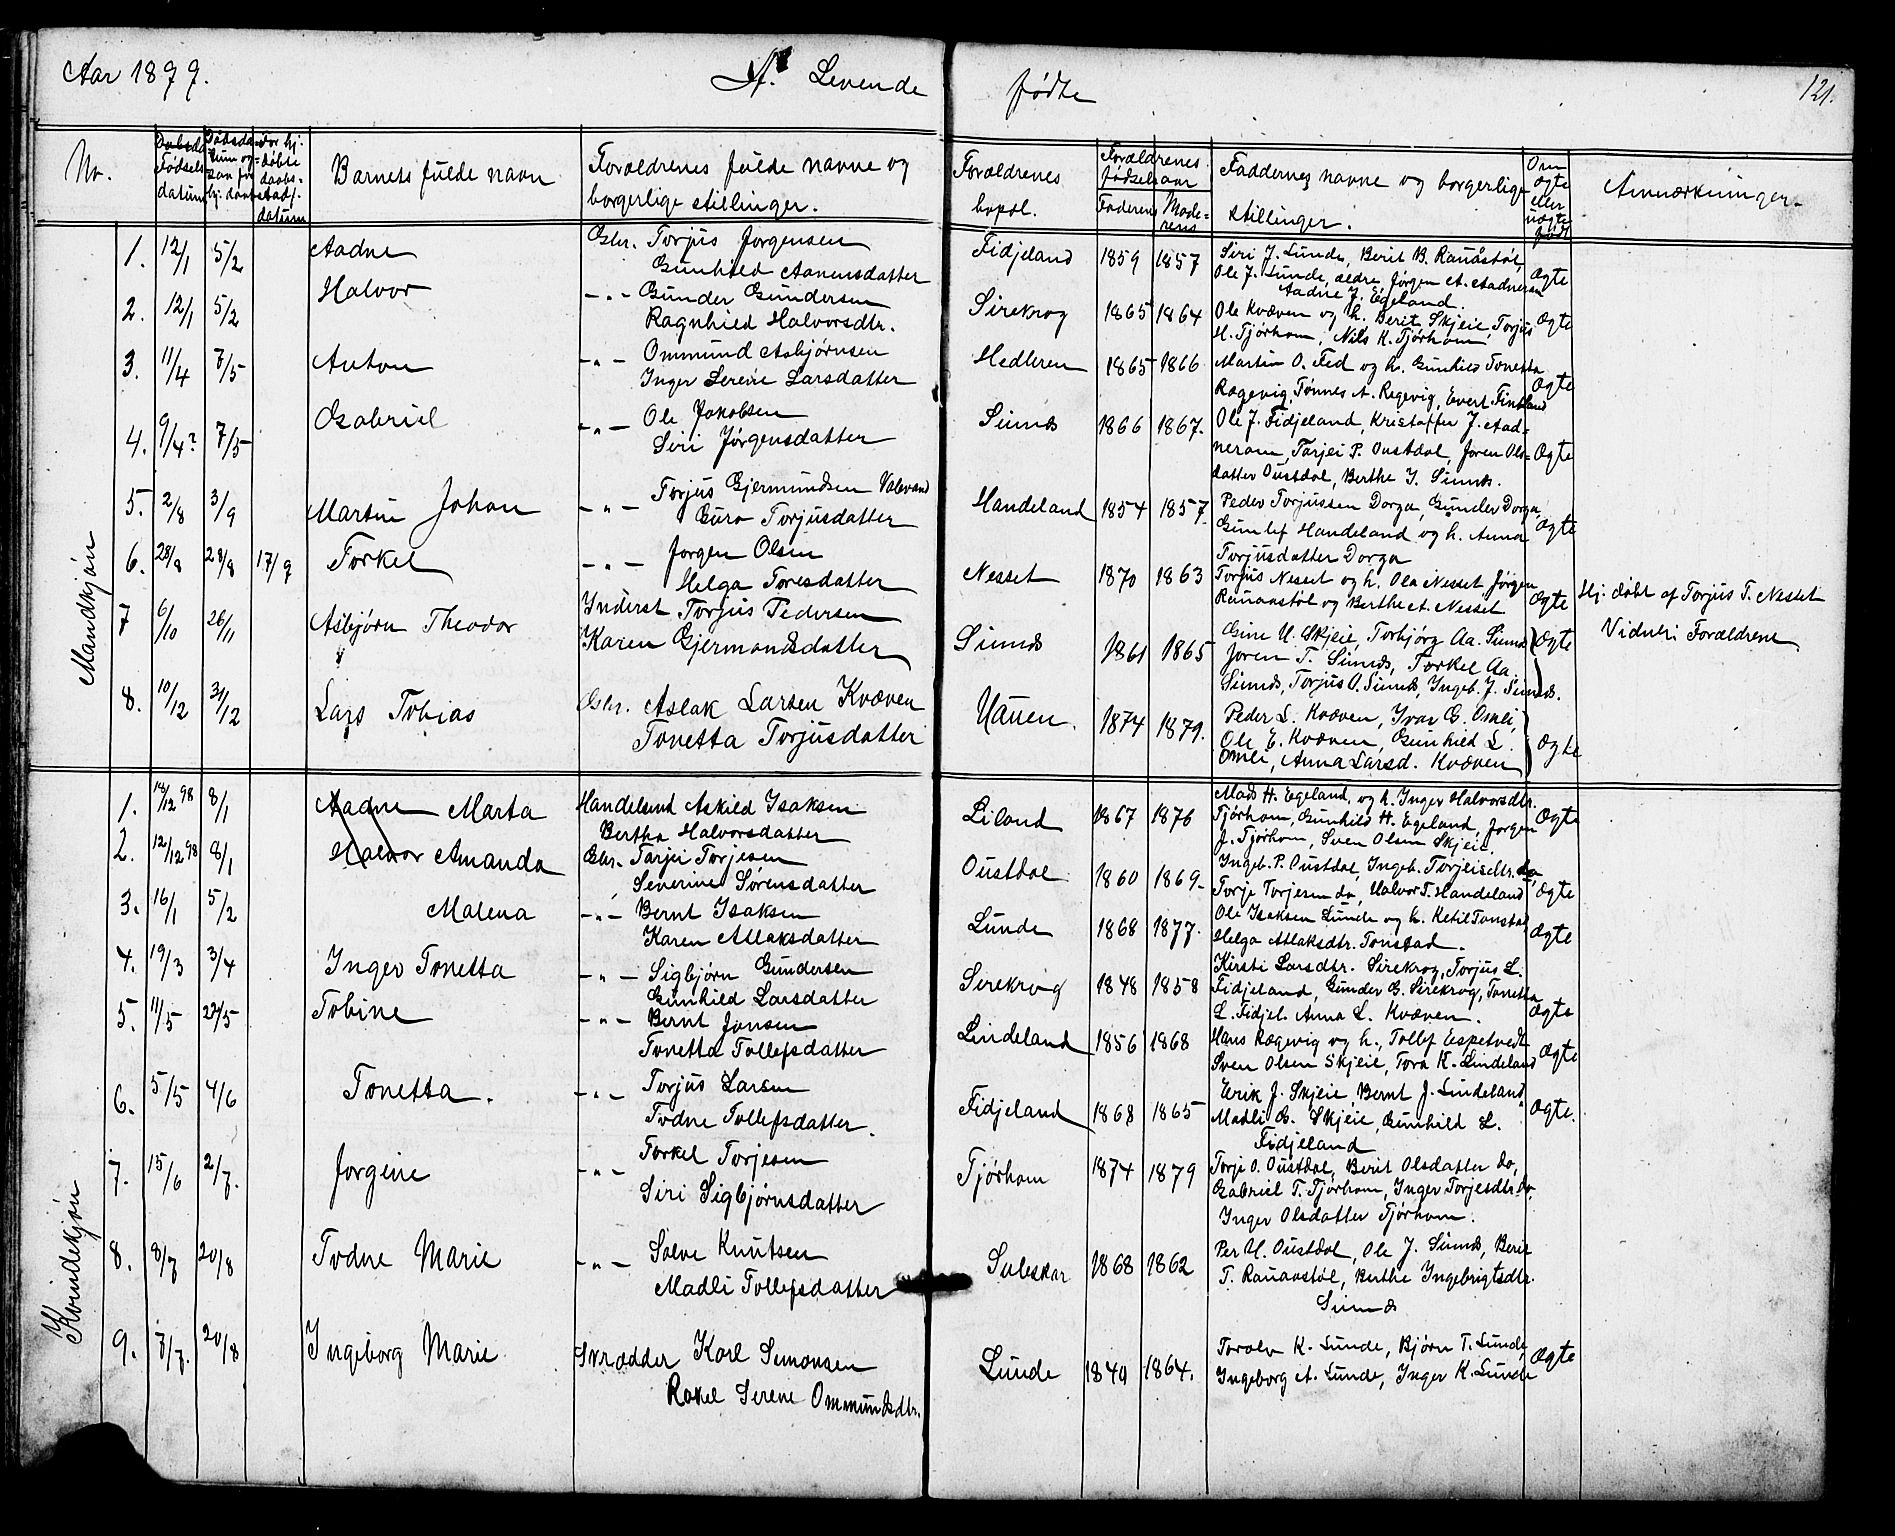 Aar 1899.
A. Levende fødte
121.
No. | Fødsels datum | Daabsdatum | Barnets fulde navn | Forældrenes fulde navne og borgerlige stillinger. | Forældrenes bopæl. | Forældrenes fødselsaar Faderens Moderens | Faddernes navne og borgerlige stillinger. | Om ægte eller uægte født | Anmærkninger.
Mandkjøn
1. 12/1 5/2 Aadne
Gbr. Torjus Jørgensen
Gunhild Aanensdatter
Fidjeland 1859 1857
Siri J. Lunde, Berit B. Rauåstøl,
Ole J. Lunde, ældre, Jørgen A. Aadneram
Aadne J. Egeland.
Ægte
2. 12/1 5/2 Halvor
-"- Gunder Gundersen
Ragnhild Halvorsdtr.
Sirekrog 1865 1864
Ole Kvæven og h. Berit Skjeie, Torjus
H. Tjørhom, Nils K. Tjørhom
Ægte
3. 11/4 7/5 Anton
-"- Ommund Asbjørnsen
Inger Serene Larsdatter
Hedleren 1865 1866
Martin O. Fed og h. Gunhild Tonetta
Rægevig, Tønnes A. Regevig, Evert Fintland
Ægte
4. 9/4? 7/5 Gabriel
-"- Ole Jakobsen
Siri Jørgensdatter
Sinnes 1866 1867.
Ole J. Fidjeland, Kristoffer J. Aad=
neram, Tarjei P. Oustdal, Joren Ols=
datter Oustdal, Berthe J. Sinnes.
Ægte
5. 2/8 3/9 Martin Johan
-"- Torjus Gjermundsen Valevand
Guro Torjusdatter
Handeland 1854 1857.
Peder Torjussen Dorga, Gunder Dorga,
Gunlef Handeland og h. Anna
Torjusdatter Dorga
Ægte
6. 28/8 28/8 17/9 Torkel
-"- Jørgen Olsen
Helga Toresdatter
Nesset 1870 1863
Torjus Nesset og h. Ola Nesset, Jørgen
Rauanstøl og Berthe A. Nesset
Ægte
Hj. døbt af Torjus T. Nesset
Vidner: Forældrene
7 6/10 26/11 Asbjørn Theodor
Inderst Torjus Pedersen
Karen Gjermondsdatter
Sinnes 1861 1865
Gine U. Skjeie, Torbjørg Aa. Sinnes
Joren T. Sinnes, Torkel Aa.
Sinnes, Torjus O. Sinnes, Ingeb. J. Sinnes.
Ægte
8. 10/12 31/12 Lars Tobias
Gbr. Aslak Larsen Kvæven
Tonetta Torjusdatter
Hauen. 1874 1879.
Peder L. Kvæven, Ivar G. Omli,
Ole E. Kvæven, Gunhild L.
Omli, Anna Larsd. Kvæven
Ægte
Kvindekjøn
1. 14/12 98 8/1 Aadne Marta
Handelsmd Askild Isaksen
Bertha Halvorsdatter
Liland 1867 1876
Mads H. Egeland, og h. Inger Halvorsdtr.
Tjørhom, Gunhild H. Egeland, Jørgen
J. Tjørhom, Sven Olsen Skjeie.
Ægte
2. 12/12 98 8/1 Halvor Amanda
Gbr. Tarjei Torjesen
Severine Sørensdatter
Oustdal 1860 1869.
Ingeb. P. Oustdal, Ingeb. Torjeisdtr. do,
Torje Torjesen do, Halvor T. Handeland
Ægte
3. 16/1 5/2 Malena
-"- Bernt Isaksen
Karen Atlaksdatter
Lunde 1868 1877.
Ole Isaksen Lunde og h. Ketil Tonstad
Helga Atlaksdtr. Tonstad.
Ægte
4. 19/3 3/4 Inger Tonetta
-"- Sigbjørn Gundersen
Gunhild Larsdatter
Sirekrog 1848 1858
Kirsti Larsdtr. Sirekrog, Torjus L.
Fidjeland, Gunder G. Sirekrog, Tonetta
L. Fidjel. Anna L. Kvæven.
Ægte
5. 11/5 22/5 Tobine
-"- Bernt Jonsen
Tonetta Tollefsdatter
Lindeland 1856 1868
Hans Rægevig og h., Tollef Espetvedt
Sven Olsen Skjeie, Tora K. Lindeland
Ægte
6. 5/5 4/6 Tonetta.
-"- Torjus Larsen
Todne Tollefsdatter.
Fidjeland 1868 1865
Eerik J. Skjeie, Bernt J. Lindeland
Madli G. Skjeie, Gunhild L.
Fidjeland
Ægte.
7. 15/6 2/7. Jorgine
-"- Torkel Torjesen
Siri Sigbjørnsdatter
Tjørhom 1874 1879
Torje O. Oustdal, Berit Olsdatter do,
Gabriel T. Tjørhom, Inger Torjesdtr. do,
Inger Olsdatter Tjørhom.
8. 8/7 20/8 Todne Marie
-"- Salve Knutsen
Madli Tollefsdatter
Suleskar 1868 1862
Per U. Oustdal, Ole J. Sinnes, Berit
T. Rauanstøl, Berthe Ingebrigtsdtr.
Sinnes
9. 7/7. 20/8 Ingeborg Marie
Skrædder Karl Simonsen
Rakel Serene Ommundsdtr.
Lunde 1840 1864.
Toralv K. Lunde, Bjørn T. Lunde,
Ingeborg A. Lunde, Inger K. Lunde
Ægte